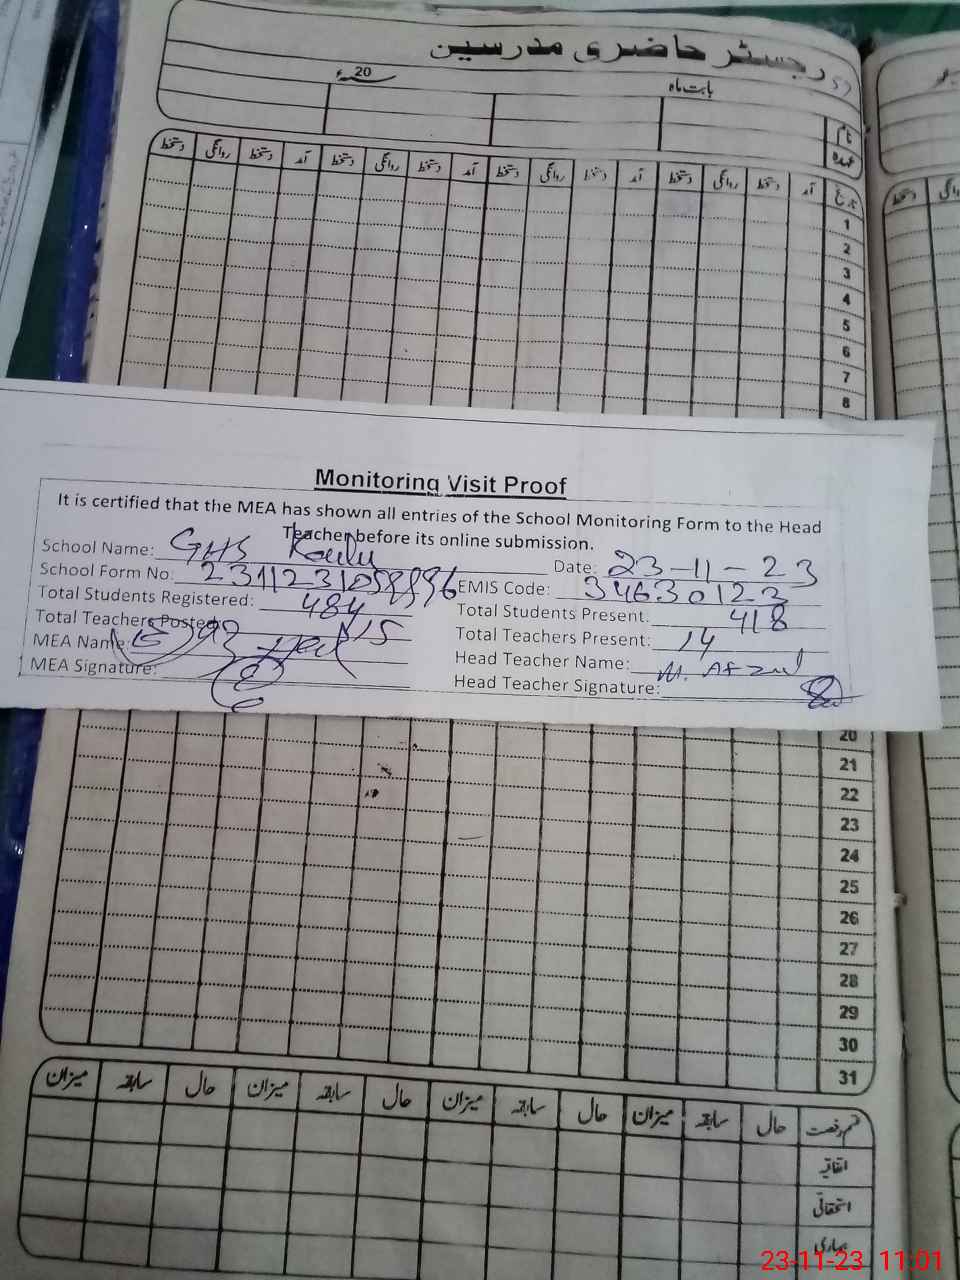 رجسٹر حاضری مدرسین
بابت ماہ 20ء
نام
عہدہ
تاریخ آمد دستخط روانگی دستخط آمد دستخط روانگی دستخط آمد دستخط روانگی دستخط آمد دستخط روانگی دستخط
1
2
3
4
5
6
7
8
Monitoring Visit Proof
It is certified that the MEA has shown all entries of the School Monitoring Form to the Head
Teacher before its online submission.
School Name: GHS Date: 23-11-23
School Form No: EMIS Code: 34630123
Total Students Registered: 484 Total Students Present: 418
Total Teachers Posted: 15 Total Teachers Present: 14
MEA Name: Head Teacher Name: M. Afzal
MEA Signature: Head Teacher Signature:
20
21
22
23
24
25
26
27
28
29
30
31
قسم رخصت حال سابقہ میزان حال سابقہ میزان حال سابقہ میزان حال سابقہ میزان
اتفاقیہ
استحقاقی
بیماری
23-11-23 11:01